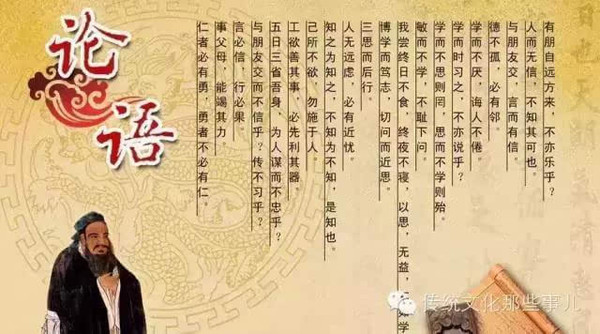 论语
有朋自远方来，不亦乐乎？
人而无信，不知其可也。
与朋友交，言而有信。
德不孤，必有邻。
学而不厌，诲人不倦。
学而时习之，不亦说乎？
学而不思则罔，思而不学则殆。
敏而不学，不耻下问。
我尝终日不食，终夜不寝，以思，无益，学
博学而笃志，切问而近思。
三思而后行。
人无远虑，必有近忧。
知之为知之，不知为不知，是知也。
己所不欲，勿施于人。
工欲善其事，必先利其器。
五日三省吾身，为人谋而不忠乎？
与朋友交而不信乎？传不习乎？
言必信，行必果。
事父母，能竭其力
仁者必有勇，勇者不必有仁。
传统文化那些事儿